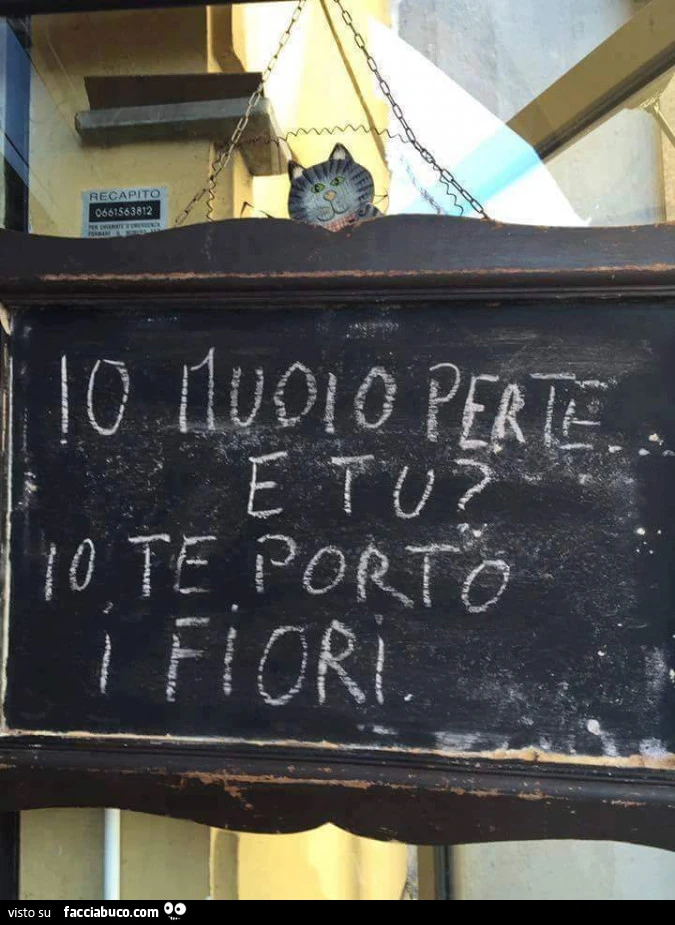 RECAPITO
0661563812
PER CHIAMATE D'EMERGENZA
FORMARE IL NUMERO
IO MUOIO PER TE...
E TU?
IO TE PORTO
i FiORi.
visto su facciabuco.com